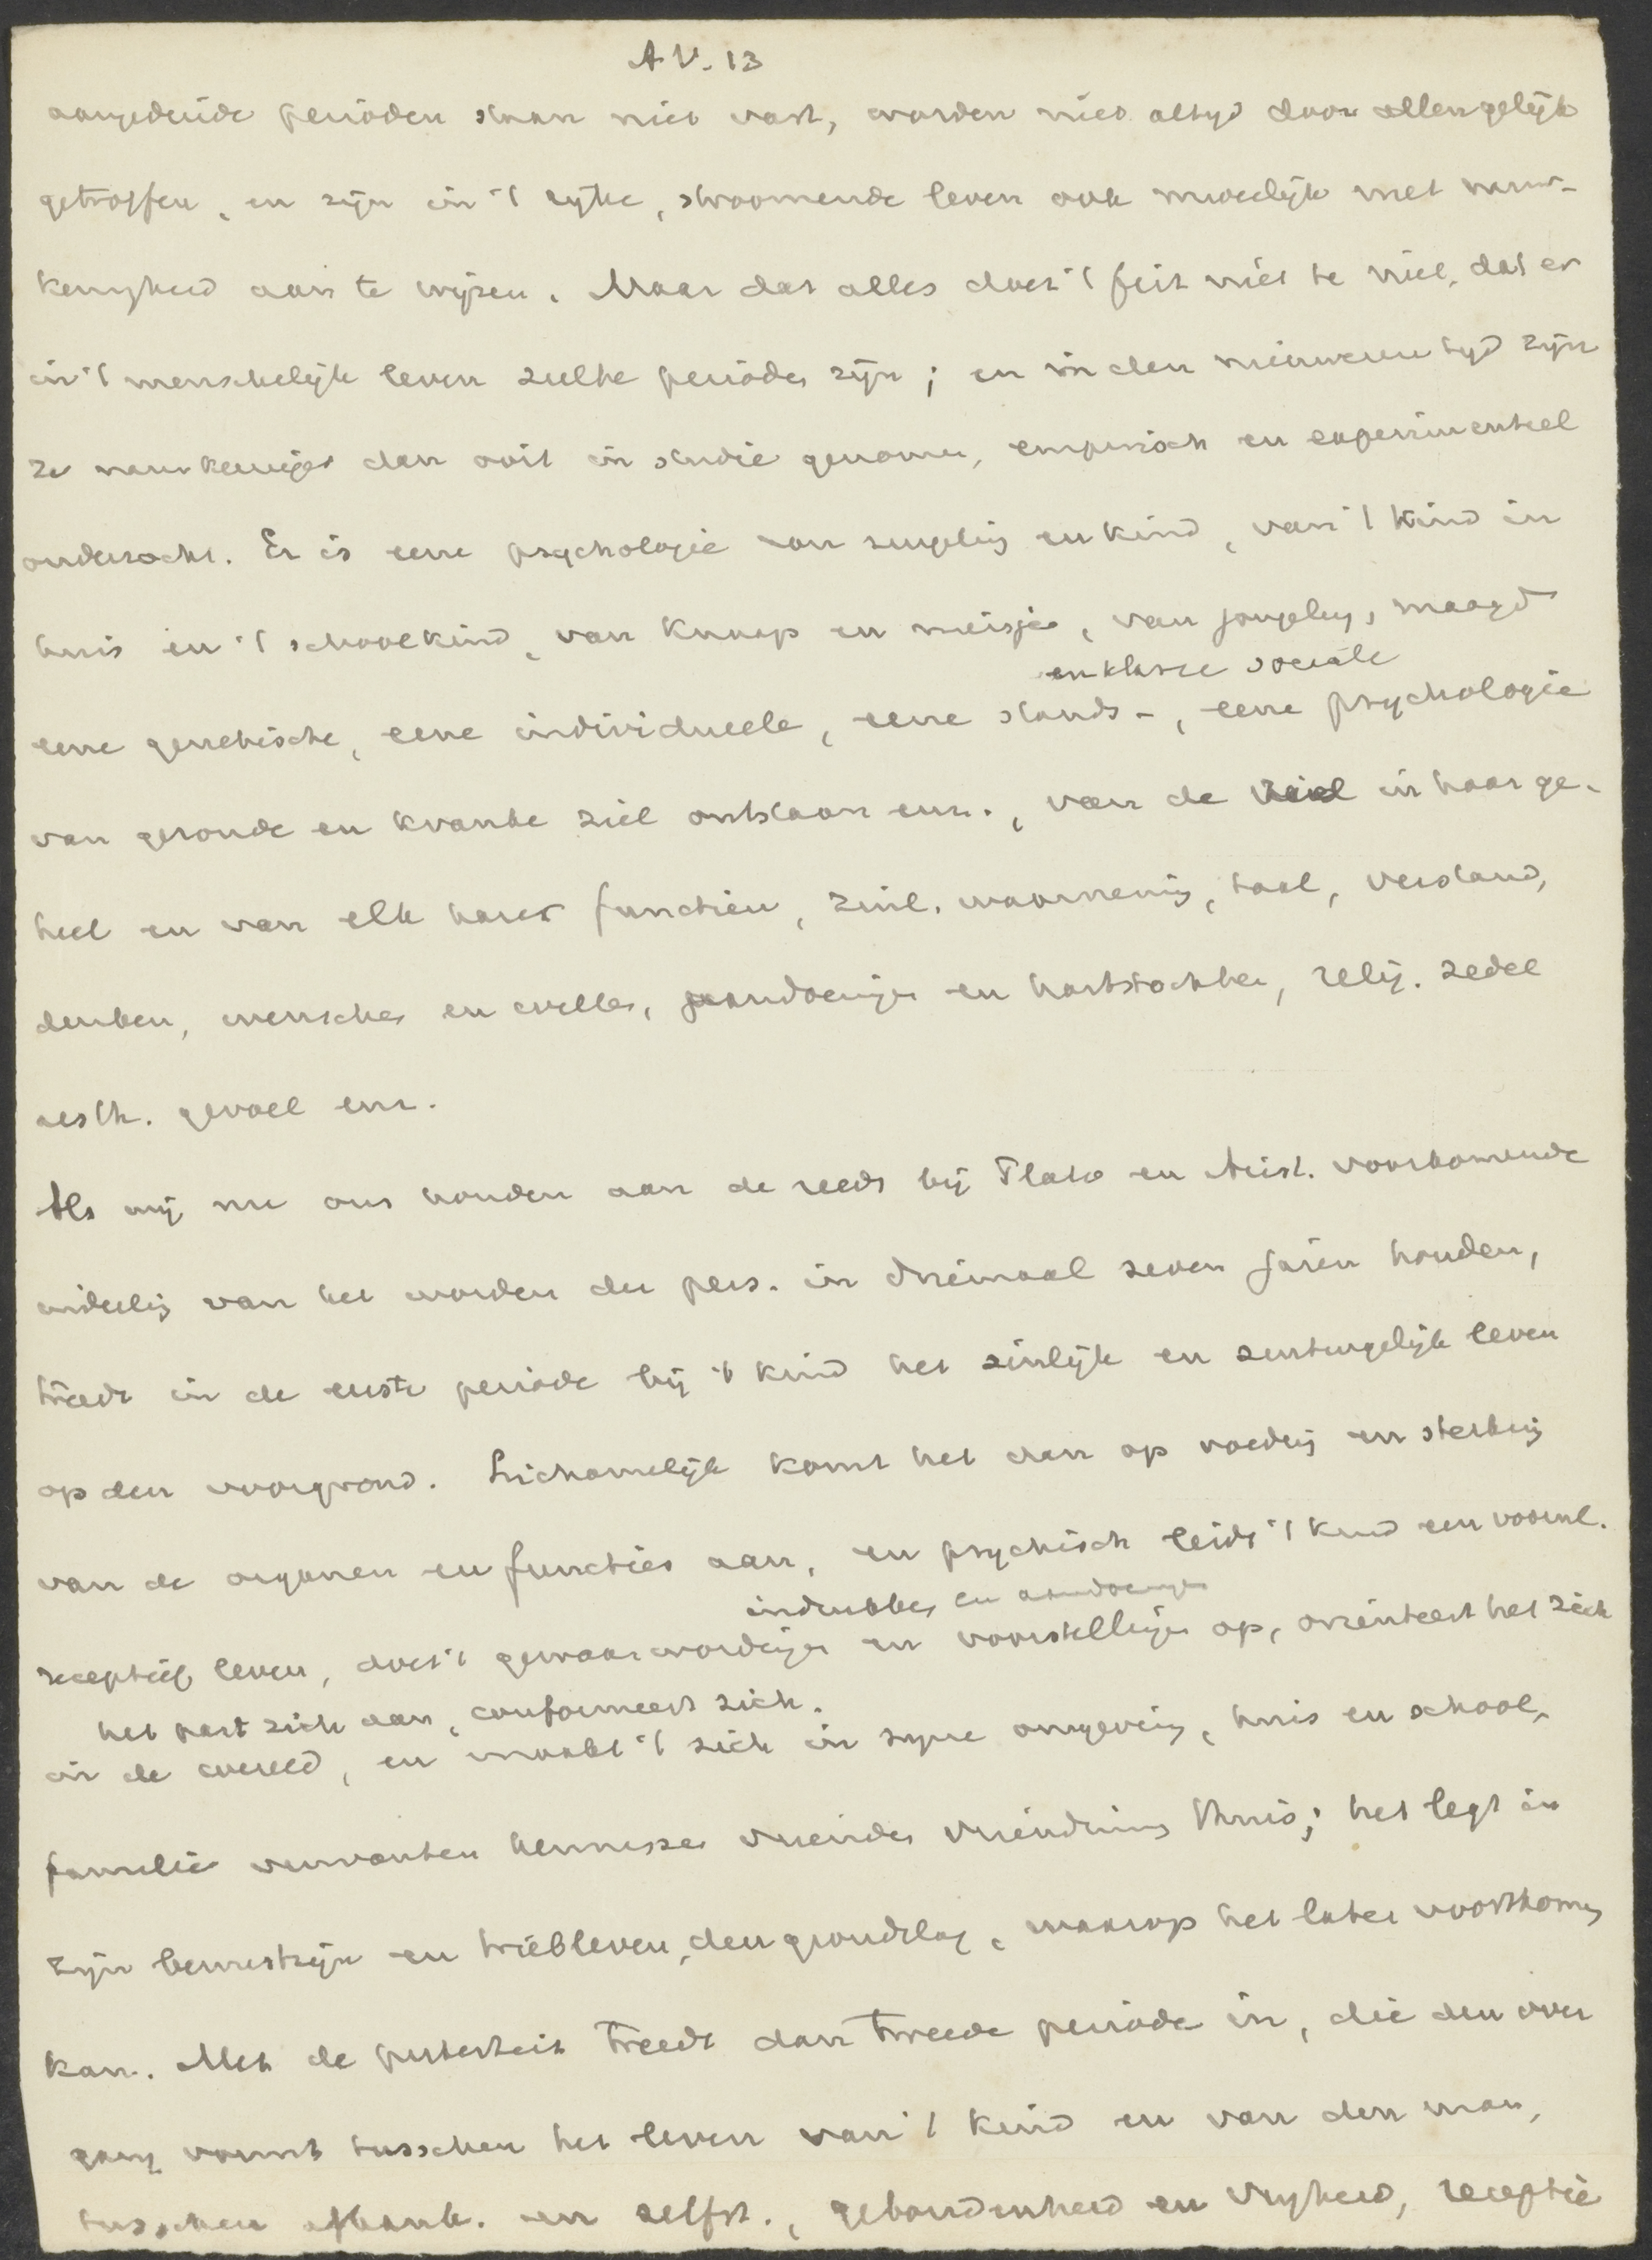 A V. 13
aangeduide perioden staan niet vast, worden niet altyd door allen gelijk
getroffen, en zijn in 't rijke, stroomende leven ook moeilijk met nauw-
keurigheid aan te wijzen. Maar dat alles doet 't feit niet te niet, dat er
in 't menschelijk leven zulke periodes zijn; en in den nieuweren tyd zijn
ze nauwkeuriger dan ooit in studie genomen, empirisch en experimenteel
onderzocht. Er is eene psychologie van zuigeling en kind, van 't kind in
huis en 't schoolkind, van knaap en meisje, van jongeling, maagd
en klasse sociale
eene genetische, eene individueele, eene stands-, eene psychologie
van gezonde en kranke ziel ontstaan enz., van de ziel in haar ge-
heel en van elk harer functien, zintl. waarneming, taal, verstand,
denken, wenschen en willen, aandoeningen en hartstochten, relig. zedel
aesth. gevoel enz.
Als wij nu ons houden aan de reeds bij Plato en Arist. voorkomende
indeeling van het worden der pers. in driemaal zeven jaren houden,
treedt in de eerste periode bij 't kind het zinlijk en zintuigelijk leven
op den voorgrond. Lichamelijk komt het dan op voeding en sterking
van de organen en functies aan, en psychisch leidt 't kind een voornl.
indrukken en aandoeningen
receptief leven, doet 't gewaarwordingen en voorstellingen op, orienteert het zich
het past zich aan, conformeert zich.
in de wereld, en maakt 't zich in zyne omgeving, huis en school,
familie verwanten kennissen vrienden vriendinnen thuis; het legt in
zijn bewustzijn en triebleven, den grondslag, waarop het later voortbouwen
kan. Met de puberteit treedt dan tweede periode in, die den over
gang vormt tusschen het leven van 't kind en van den man,
tusschen afhank. en zelfst., gebondenheid en vryheid, receptie